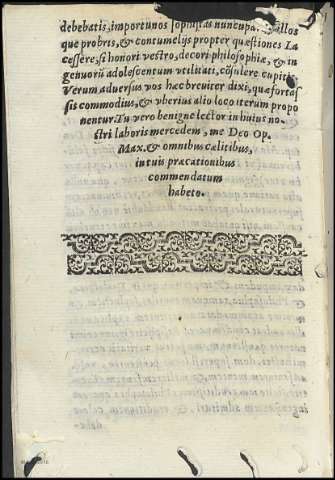 debebatis, importunos sophistas nuncupare, illos
que probris, & contumelijs propter quæstiones La
cessere, si honori vestro, decori philosophiæ, & in
genuorũ adolescentum vtilitati, cõsulere cupitis.
Verum aduersus vos hæc breuiter dixi, quæ fortas
sis commodius, & vberius alio loco iterum propo
nentur. Tu vero benigne lector in huius no-
stri laboris mercedem, me Deo Op.
Max. & omnibus cælitibus,
in tuis præcationibus
commendatum
habeto.